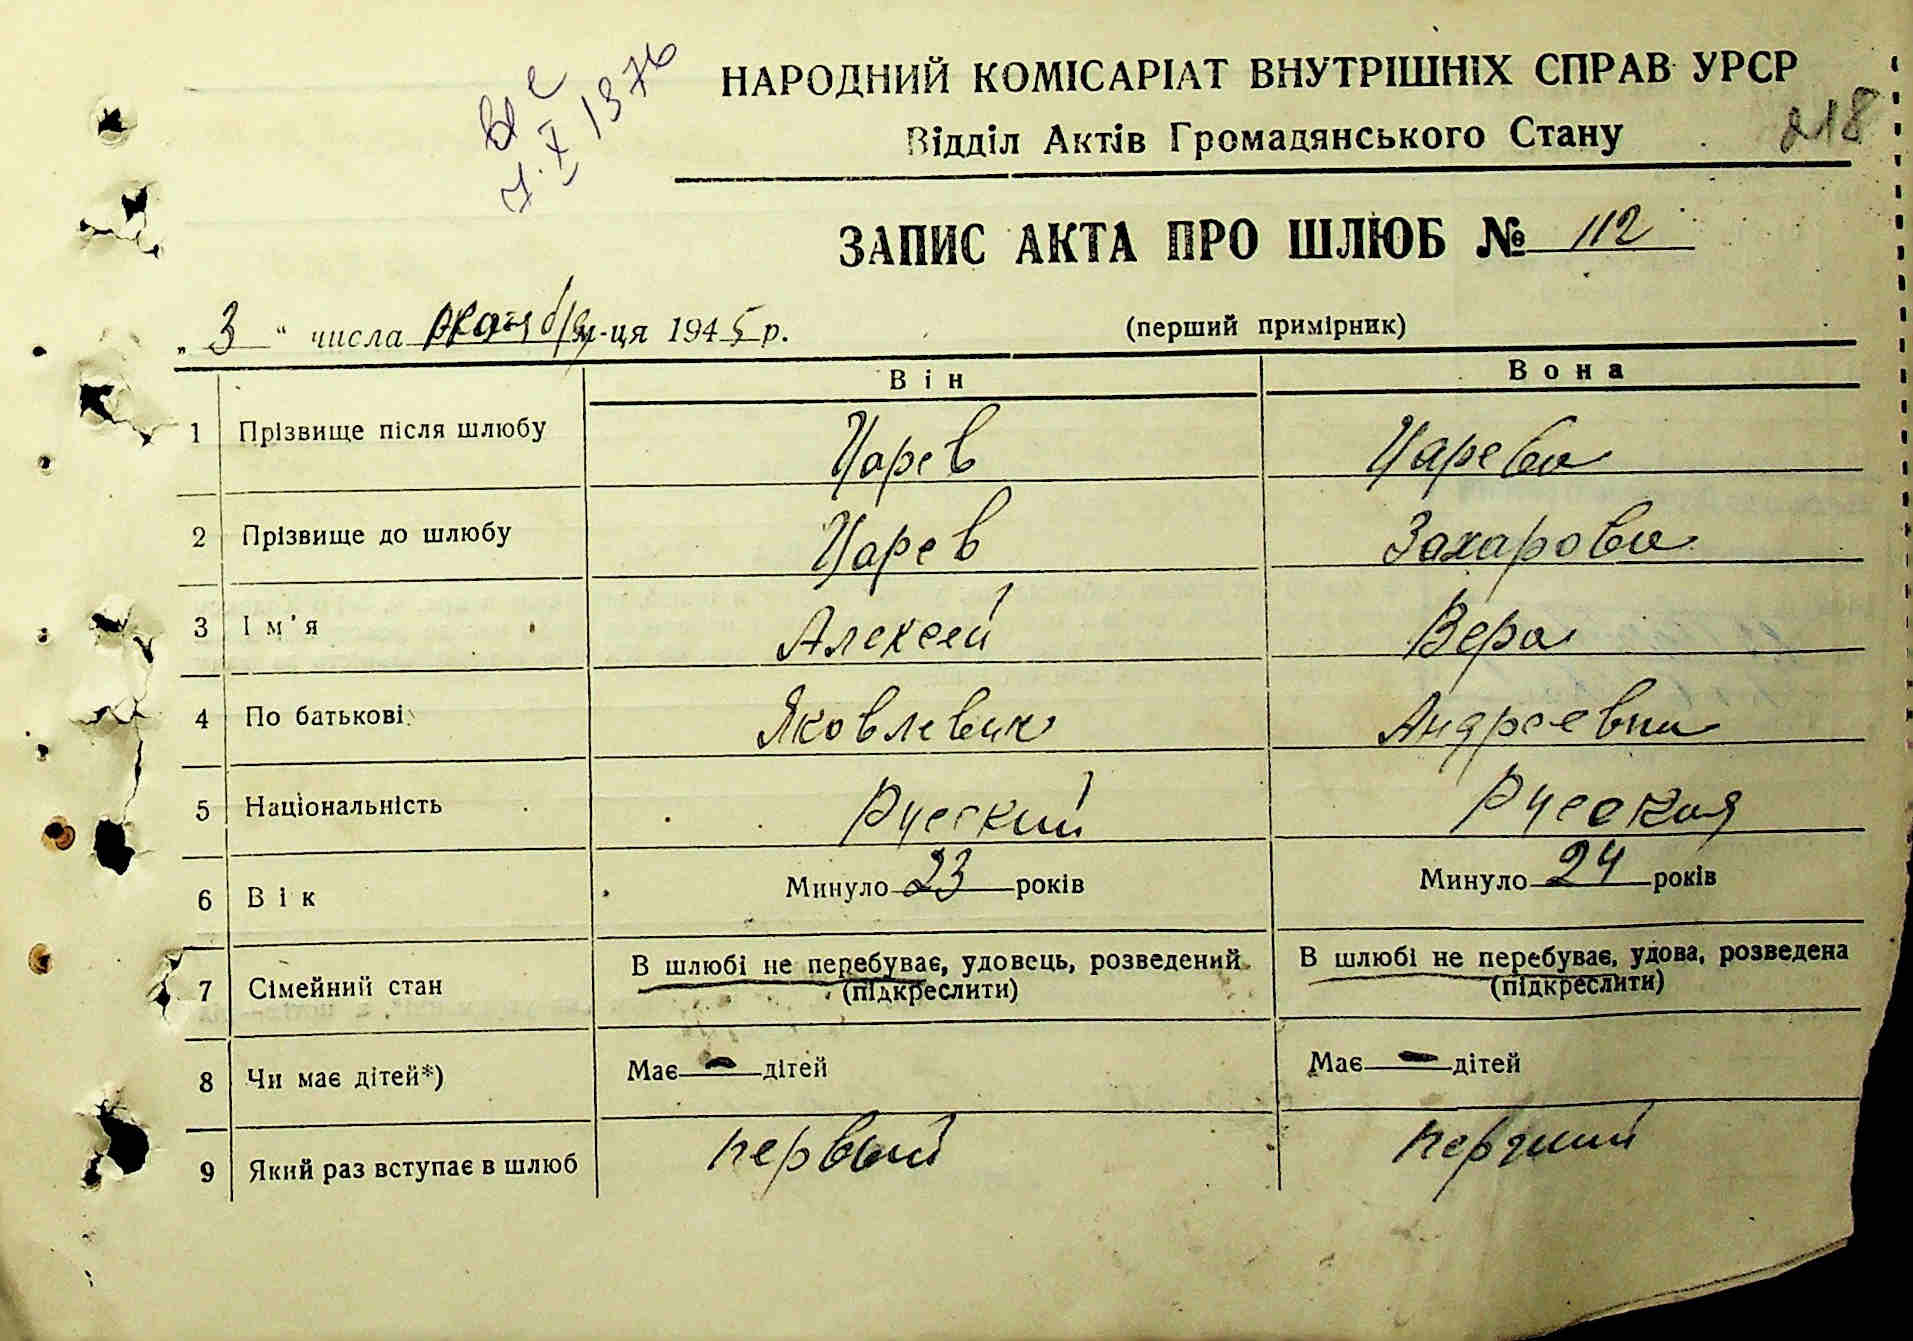 НАРОДНИЙ КОМІСАРІАТ ВНУТРІШНІХ СПРАВ УРСР
Відділ Актів Громадянського Стану
218
ЗАПИС АКТА ПРО ШЛЮБ № 112
„ 3 “ числа октября м-ця 1945 р.
(перший примірник)
Він Вона
1 Прізвище після шлюбу Царев Царева
2 Прізвище до шлюбу Царев Захарова
3 Ім'я Алексей Вера
4 По батькові Яковлевич Андреевна
5 Національність Русский Русская
6 Вік Минуло 23 років Минуло 24 років
7 Сімейний стан В шлюбі не перебуває, удовець, розведений (підкреслити) В шлюбі не перебуває, удова, розведена (підкреслити)
8 Чи має дітей*) Має — дітей Має — дітей
9 Який раз вступає в шлюб первый